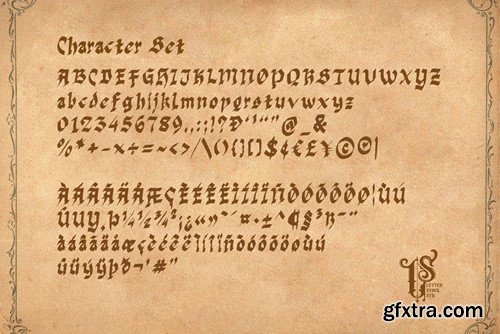 Character Set
ABCDEFGHIJKLMNOPQRSTUVWXYZ
abcdefghijklmnopqrstuvwxyz
0123456789.,:;!?Ð''“”@_&
%*+-x÷=~<>/\(){}[]$¢€£¥©®|
ÀÁÂÃÄÅÆÇÈÉÊËÌÍÎÏÑÒÓÔÕÖØ|ÙÚ
ÛÜÝ
àáâãäåæçèéêëìíîïñòóôõöøùú
ûüýÿþ
LETTER
STOCK
STD
gfxtra.com